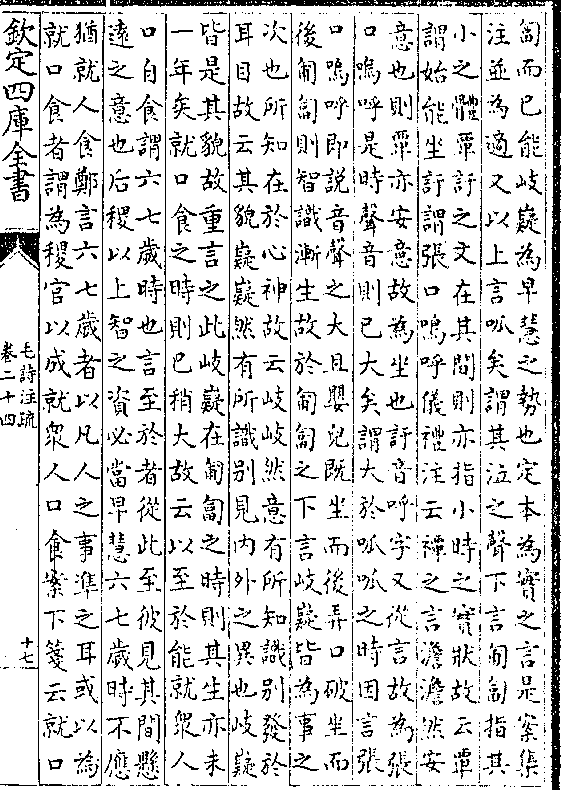 匐而已能岐嶷為早慧之勢也定本為實之言是案集
注並為適又以上言呱矣謂其泣之聲下言匍匐指其
小之體覃訏之文在其間則亦指小時之實狀故云覃
謂始能坐訏謂張口嗚呼儀禮注云禫之言澹澹然安
意也則覃亦安意故為坐也訏音呼字又從言故為張
口嗚呼是時聲音則已大矣謂大於呱呱之時因言張
口嗚呼即説音聲之大且嬰兒既坐而後弄口破坐而
後匍匐則智識漸生故於匍匐之下言岐嶷皆為事之
次也所知在於心神故云岐岐然意有所知識別發於
耳目故云其貌嶷嶷然有所識別見内外之異也岐嶷
皆是其貌故重言之此岐嶷在匍匐之時則其生亦未
一年矣就口食之時則已稍大故云以至於能就衆人
口自食謂六七歳時也言至於者從此至彼見其間懸
遠之意也后稷以上智之資必當早慧六七歳時不應
猶就人食鄭言六七歳者以凡人之事準之耳或以為
就口食者謂為稷官以成就衆人口食案下箋云就口
欽定四庫全書
毛詩注疏
卷二十四
十七